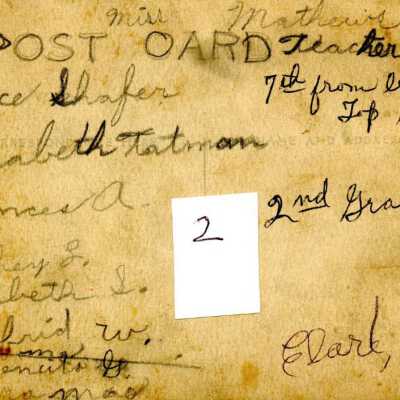 miss Mathews
POST CARD Teacher
ce Shafer
7th from
Top
abeth Tatman
AME AND ADDRES
nces A.
2nd Gra
2
ey S.
beth S.
rid W.
Clark,
G.